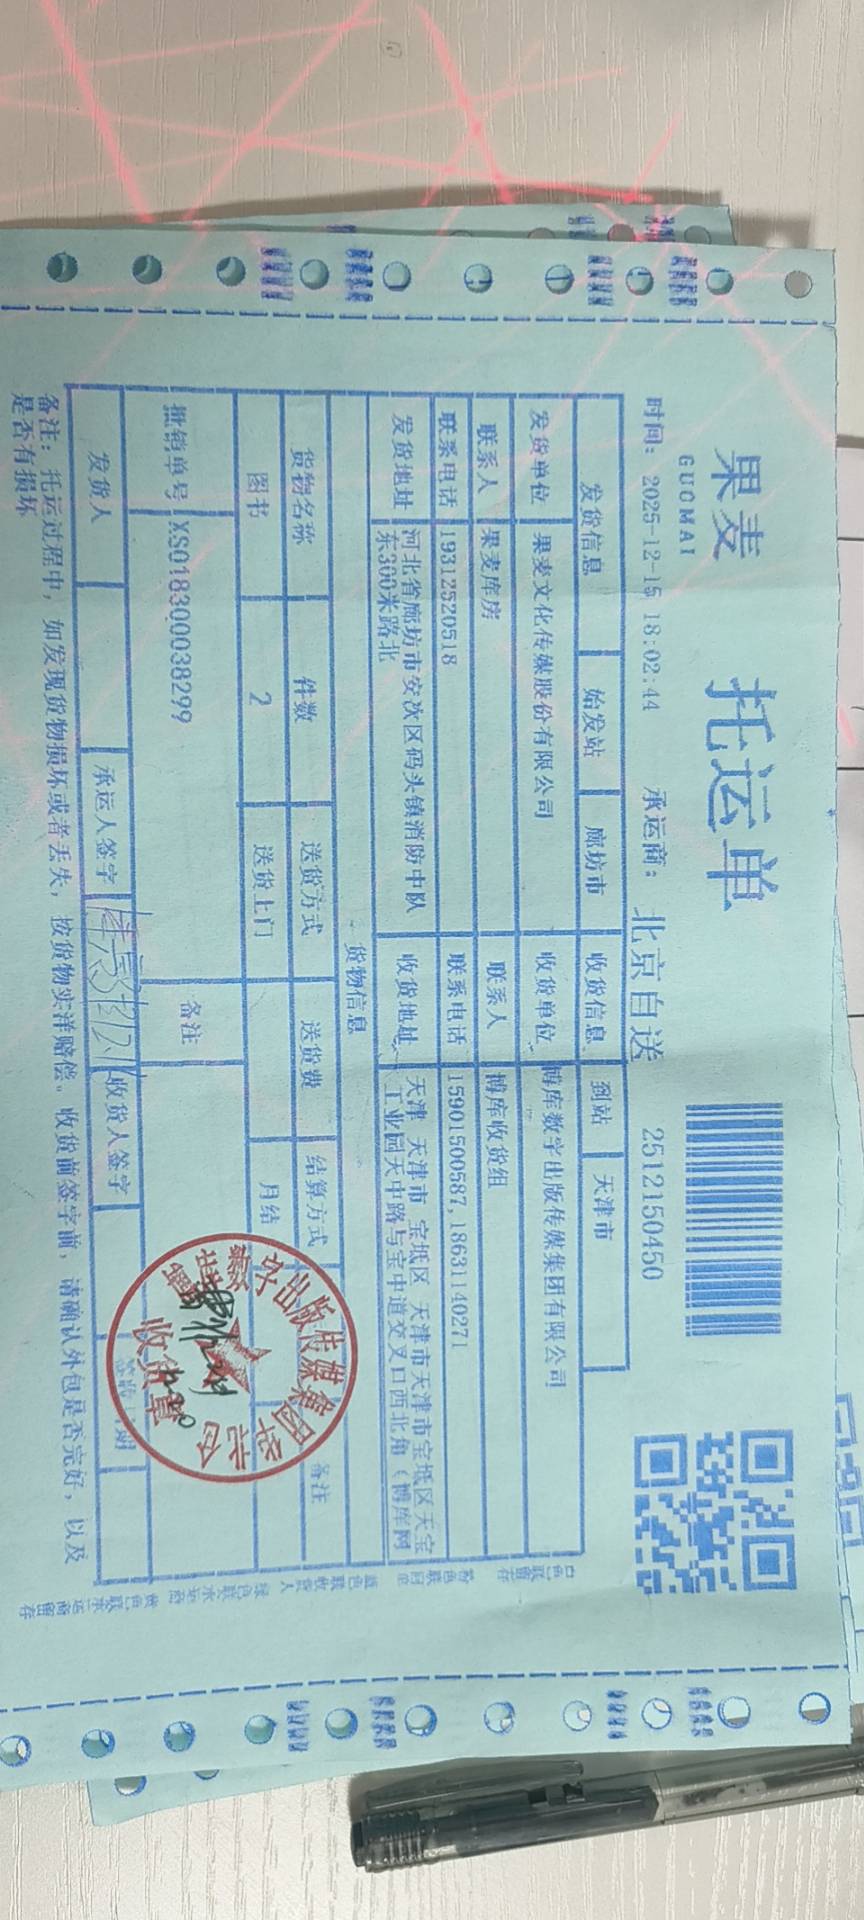 果麦
GUOMAI
托运单
时间: 2025-12-15 18:02:44 承运商: 北京自送 2512150450
发货信息 始发站 廊坊市 收货信息 到站 天津市
发货单位 果麦文化传媒股份有限公司 收货单位 博库数字出版传媒集团有限公司
联系人 果麦库房 联系人 博库收货组
联系电话 19312520518 联系电话 15901500587,18631140271
发货地址 河北省廊坊市安次区码头镇消防中队东300米路北 收货地址 天津 天津市 宝坻区 天津市天津市宝坻区天宝工业园天中路与宝中道交叉口西北角(博库网
货物信息
货物名称 件数 送货方式 送货费 结算方式 备注
图书 2 送货上门 月结
批销单号 XS018300038299 备注
发货人 承运人签字 收货人签字 签收日期
备注: 托运过程中, 如发现货物损坏或者丢失, 按货物实洋赔偿。收货前签字前, 请确认外包是否完好, 以及
是否有损坏
数字出版传媒集团华北仓
收货章
白色联留存 粉色联回单 蓝色联收货人 绿色联承运商 黄色联承运商留存